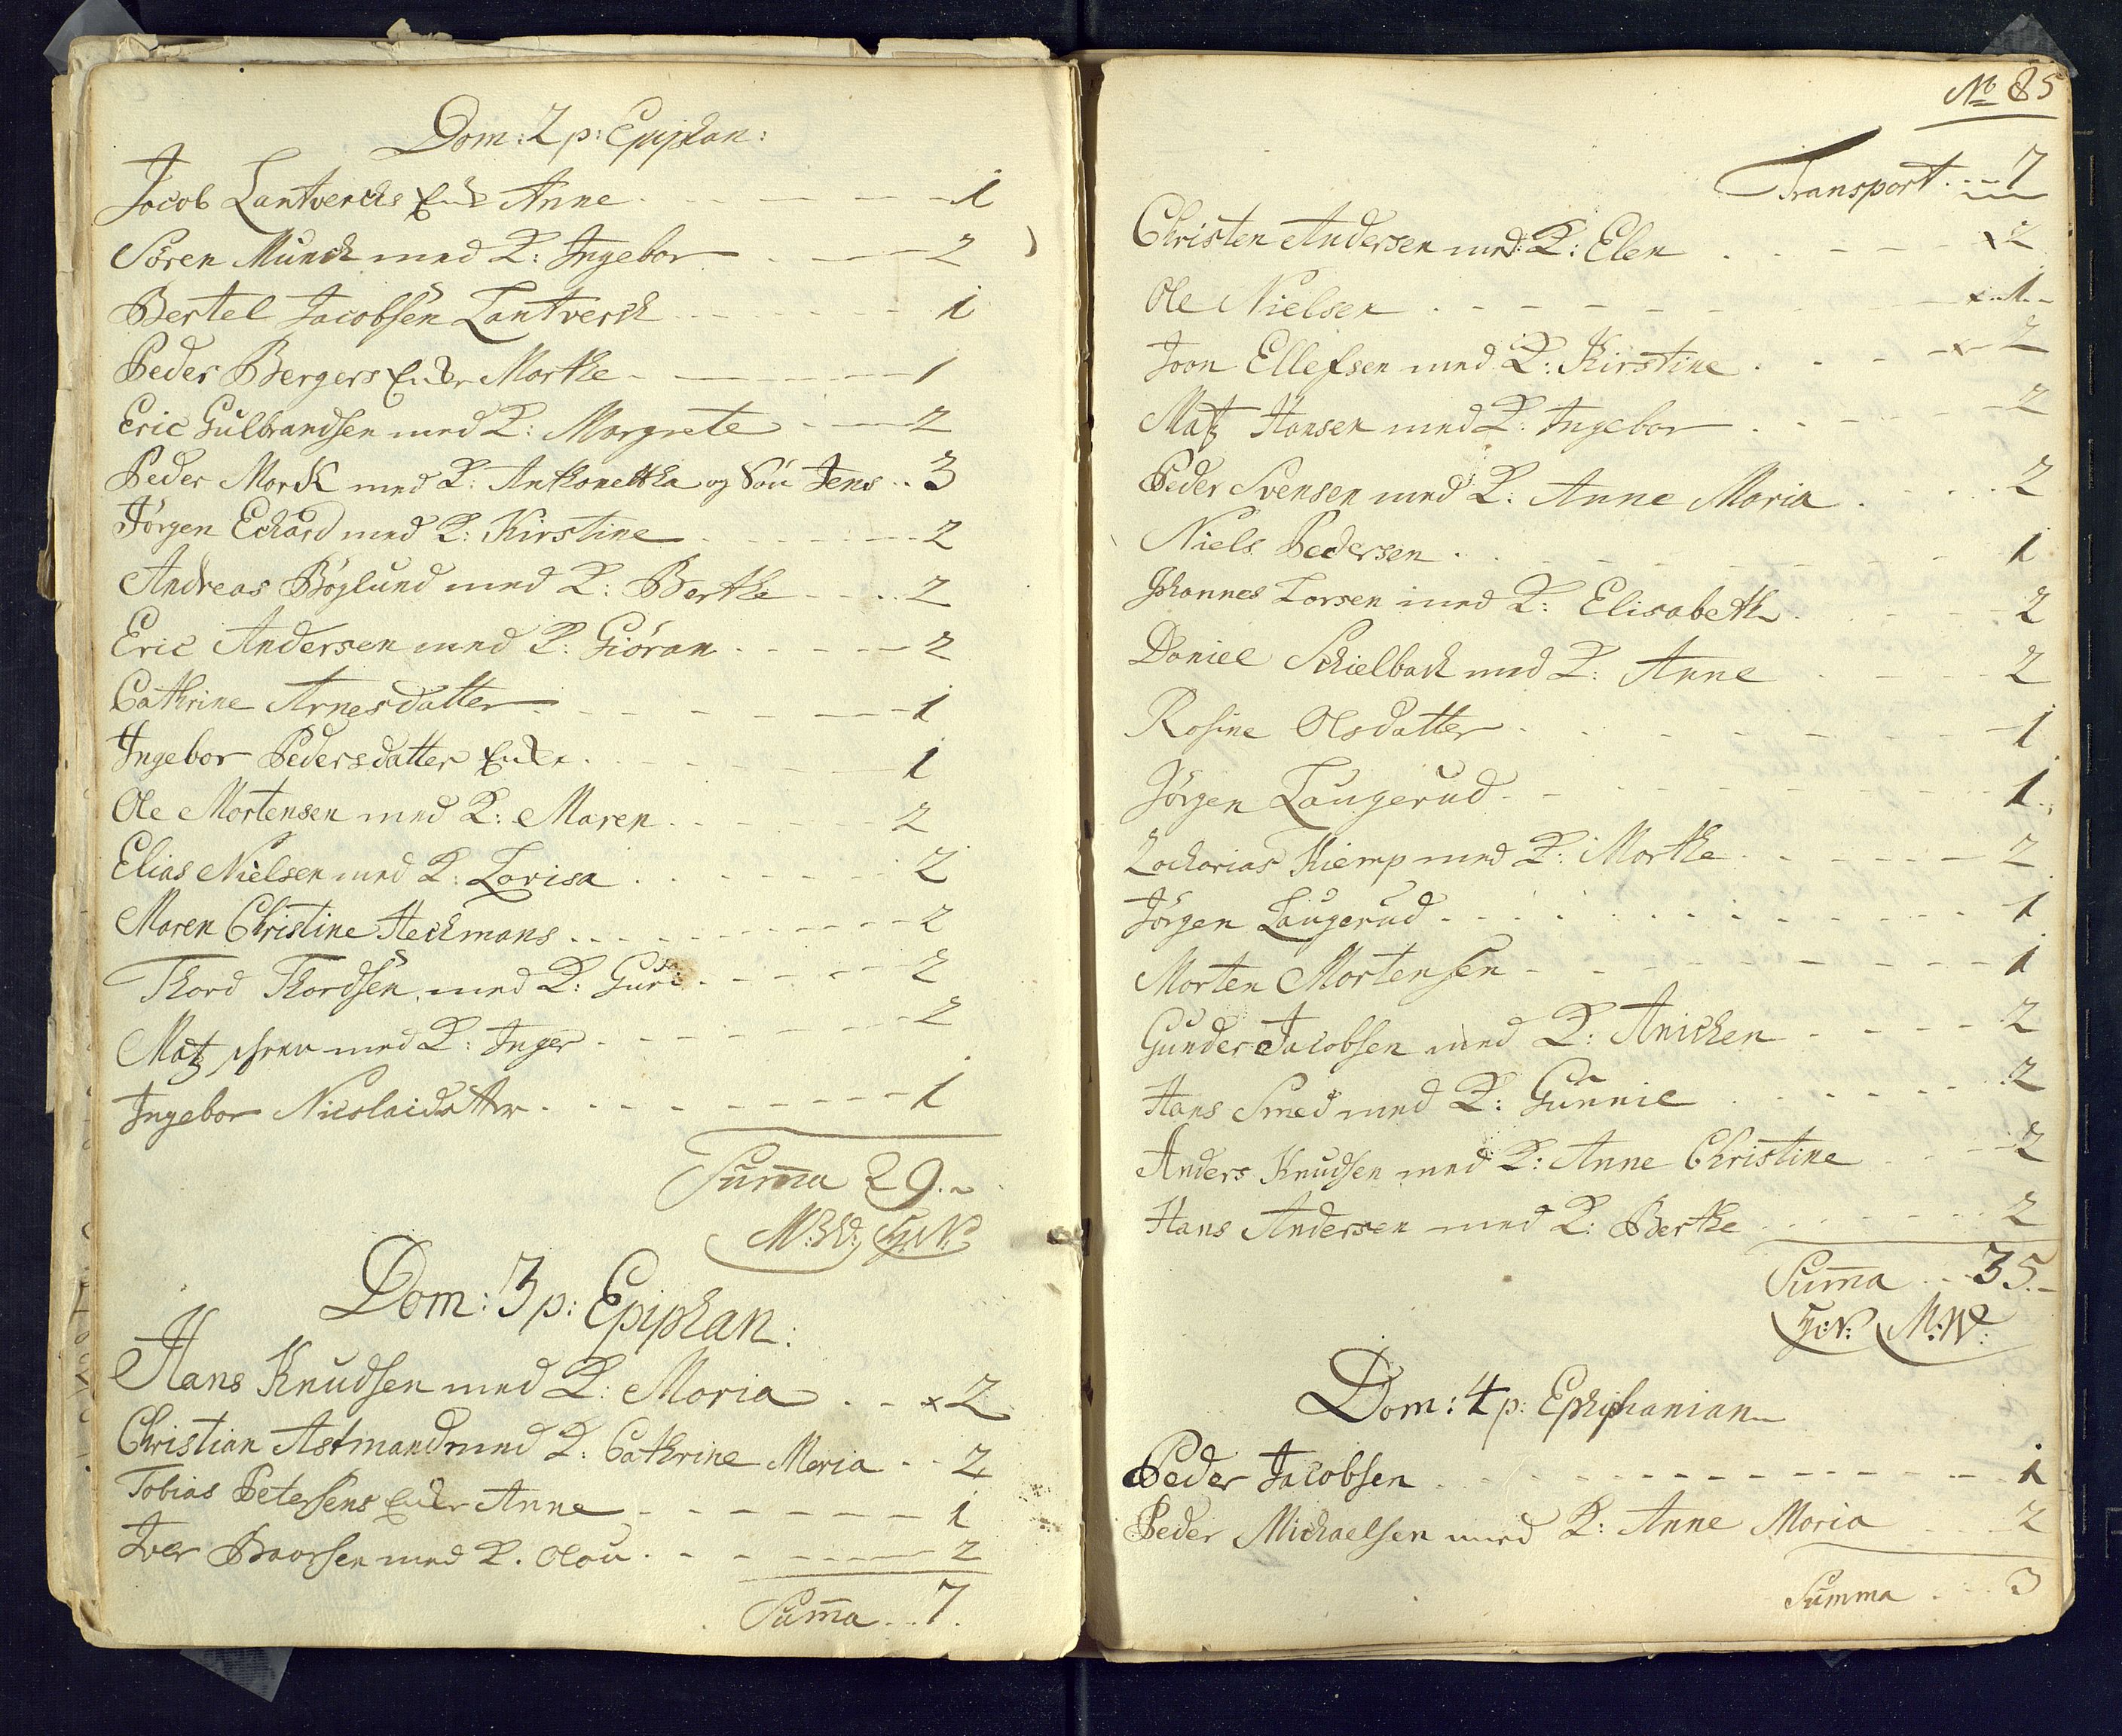 Dom: 2 p: Epiphan:
Jocob Lantvercks Enke Anne - - - - 1
Sören Munck med K: Ingebor - - - 2
Bertel Jacobsen Lantverck - - - 1
Peder Bergers Enke Marthe - - - 1
Eric Gulbrandsen med K: Margrete - - 2
Peder Morck med K: Anthonettha og Sön Jens - - 3
Jörgen Echard med K: Kirstine - - - 2
Andreas Böglund med K: Berthe - - - 2
Eric Andersen med K: Giöran - - - 2
Cathrine Arnesdatter - - - 1
Ingebor Pedersdatter Enke - - - 1
Ole Mortensen med K: Maren - - - 2
Elias Nielsen med K: Lovisa - - - 2
Maren Christine Heckmans - - - 2
Thord Thordsen med K: Guri - - - 2
Matz med K: Inger - - - 2
Ingebor Nicolaidatter - - - 1
Suma 29.
Dom: 3 p: Epiphan:
Hans Knudsen med K: Maria - - x 2
Christian Astmand med K: Cathrine Maria - - 2
Tobias Petersens Enke Anne - - - 1
Iver Baarsen med K. Olou - - - 2
Suma - - 7.
No 85
Transport - - 7
Christen Andersen med K: Elen - - - x 2
Ole Nielsen - - - x 1
Joon Ellefsen med K: Kirstine - - - x 2
Matz Hansen med K: Ingebor - - - 2
Peder Svensen med K: Anne Maria - - - 2
Niels Pedersen - - - 1
Johannes Larsen med K: Elisabeth - - - 2
Daniel Schielbach med K: Anne - - - 2
Rosine Olsdatter - - - 1
Jörgen Laugerud - - - 1
Zacharias Kiemp med K: Marthe - - - 2
Jörgen Laugerud - - - 1
Morten Mortensen - - - 1
Gunder Jacobsen med K: Anichen - - - 2
Hans Smed med K: Gunnil - - - 2
Anders Knudsen med K: Anne Christine - - - 2
Hans Andersen med K: Berthe - - - 2
Suma - - 35.
M:W:
Dom: 4 p: Ephiphanian
Peder Jacobsen - - - 1
Peder Michaelsen med K: Anne Maria - - 2
Summa - - 3